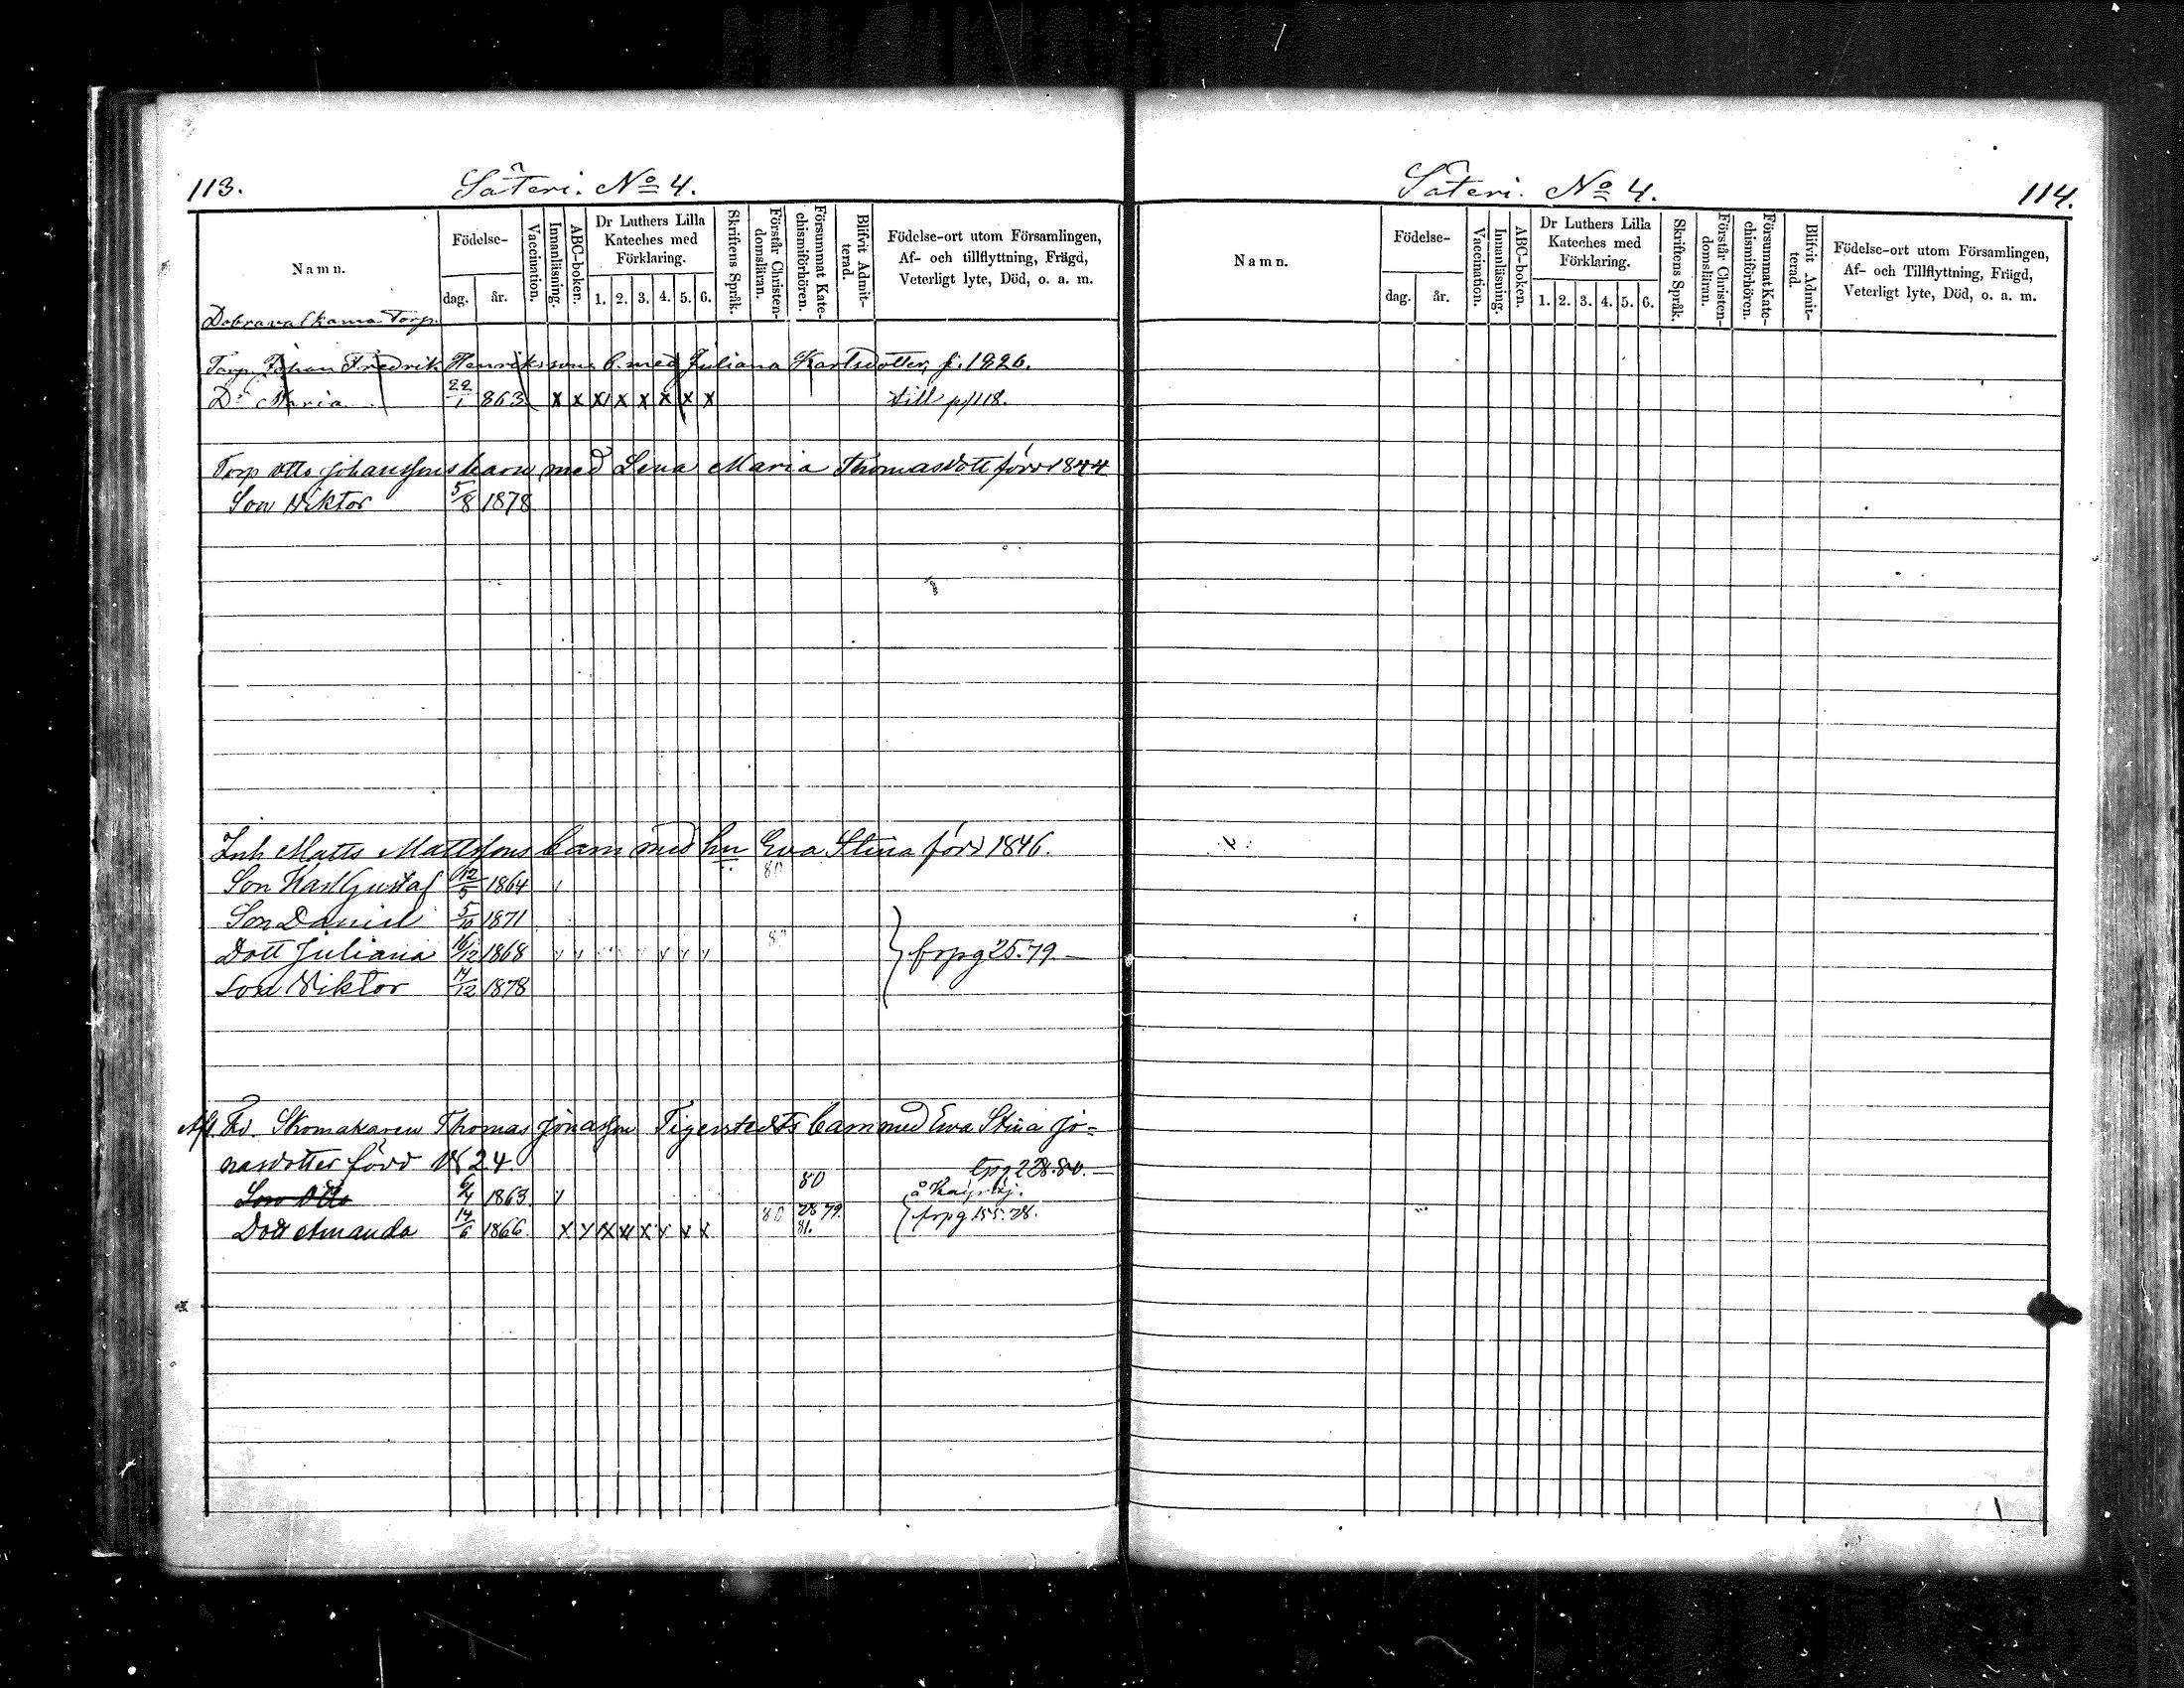 113. Säteri. No 4.
Namn.
Födelse-
dag. år.
Vaccination.
Innanläsning.
ABC-boken.
Dr Luthers Lilla
Kateches med
Förklaring.
1. 2. 3. 4. 5. 6.
Skriftens Språk.
Förstår Christen-
domsläran.
Försummat Kate-
chismiförhören.
Blifvit Admit-
terad.
Födelse-ort utom Församlingen,
Af- och tillflyttning, Frägd,
Veterligt lyte, Död, o. a. m.
Torp.
Torp. Johan Fredrik Henrikssons b. med Juliana Karlsdotter, f. 1826.
Dr Maria 22/1 863 x x x x x x x x till p 118.
Torp Otto Johanssons barn med Lena Maria Thomasdott född 1844
Son Viktor 5/8 1878
Inh Matts Mattssons barn med hu Eva Stina född 1846.
Son Karl Gustaf 12/5 1864 80
Son Daniel 5/10 1871
Dott Juliana 16/12 1868 frpg 25.79.
Son Viktor 14/12 1878
Skomakaren Thomas Jonasson Tigerstedts barn med Eva Stina Jo=
nasdotter född 1824.
tpg 228.80.
Son Otto 6/4 1863 80
Dott Amanda 14/6 1866. x x x x x x x x 80 78 79. 81. frpg 155.78.
Säteri. No 4. 114.
Namn.
Födelse-
dag. år.
Vaccination.
Innanläsning.
ABC-boken.
Dr Luthers Lilla
Kateches med
Förklaring.
1. 2. 3. 4. 5. 6.
Skriftens Språk.
Förstår Christen-
domsläran.
Försummat Kate-
chismiförhören.
Blifvit Admit-
terad.
Födelse-ort utom Församlingen,
Af- och Tillflyttning, Frägd,
Veterligt lyte, Död, o. a. m.